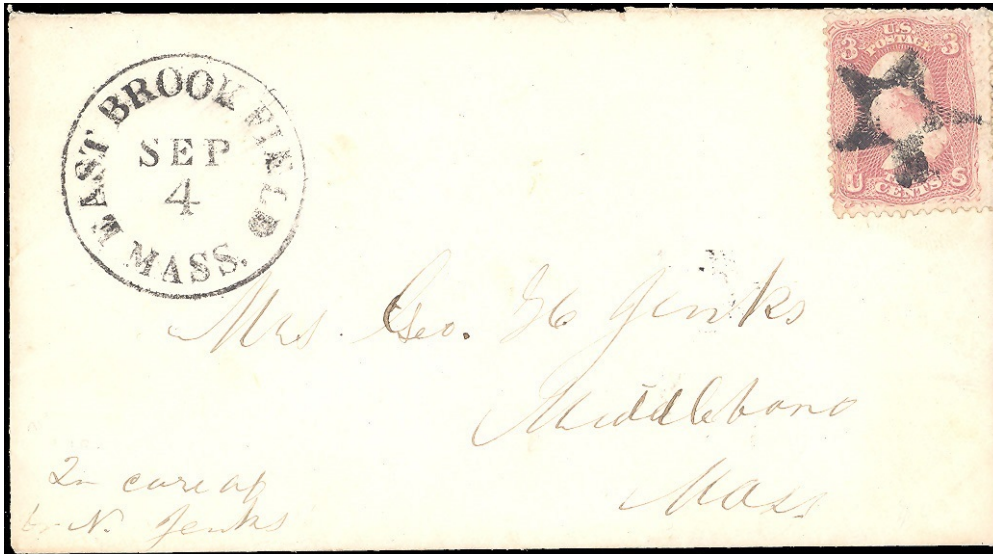 EAST BROOKFIELD
SEP
4
MASS.
3 U.S. POSTAGE 3
U CENTS S
Mrs. Geo. H Jenks
Middleboro
Mass
In care of
N. Jenks